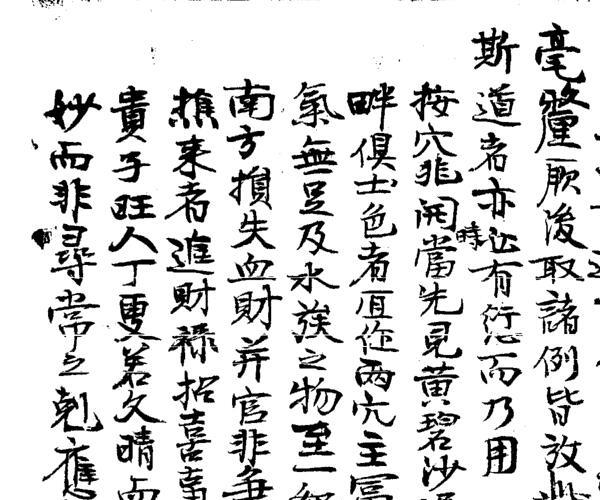 毫釐厥後取諸例皆放此
斯道者亦時必有愆而乃用
按穴非開當先見黃碧沙
畔俱土色者作兩穴主富
氣無足及水族之物至一
南方損失血財并官非爭
樵来者進財祿招喜事
貴子旺人丁更若久晴而
妙而非尋常之剋應